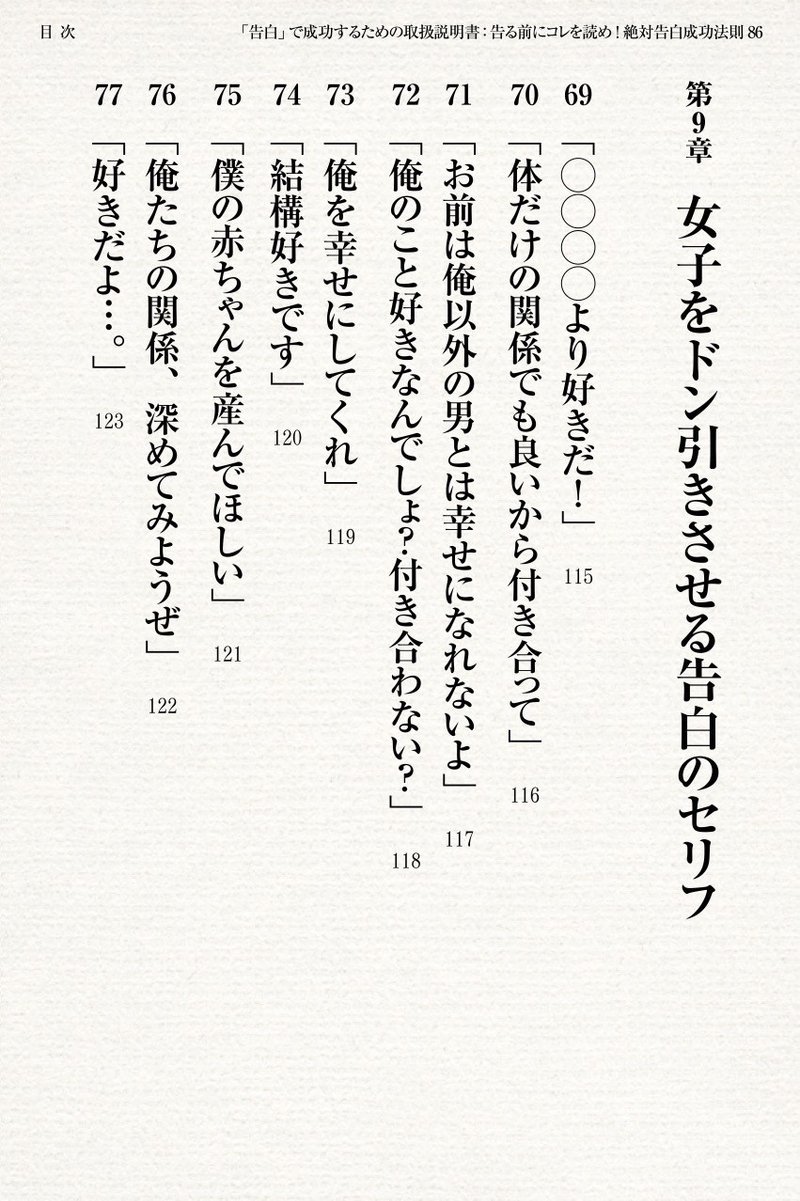 目次
「告白」で成功するための取扱説明書：告る前にコレを読め！絶対告白成功法則86
第9章 女子をドン引きさせる告白のセリフ
69 「○○○○より好きだ！」 115
70 「体だけの関係でも良いから付き合って」 116
71 「お前は俺以外の男とは幸せになれないよ」 117
72 「俺のこと好きなんでしょ？付き合わない？」 118
73 「俺を幸せにしてくれ」 119
74 「結構好きです」 120
75 「僕の赤ちゃんを産んでほしい」 121
76 「俺たちの関係、深めてみようぜ」 122
77 「好きだよ…。」 123